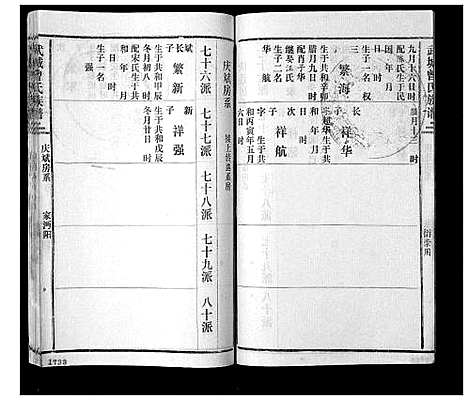 武城曾氏族谱
九月十六日 时
配陈氏生于民
国 年 月
生子一名 权
长 繁海
子
生于共和辛卯
腊月 九日 时
配肖子华
继娶江氏
生子二名
华 航
腊月十三 时
子 祥华
超华生于共
和 年 月
日 时
次 祥航
子
字 生于共
和丙寅年五月
六日 时
庆斌房系
七十六派 七十七派 七十八派 七十九派 八十派
长 繁新
子
生于共和甲辰
冬月初八 时
配宋氏生于共
和 年 月
生子一名
强
子 祥强
生于共和戊辰
冬月廿日 时
武城曾氏族谱
庆斌房系
家河阳
1733